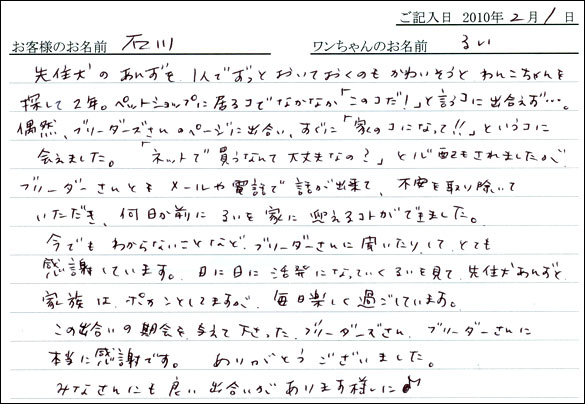 ご記入日 2010年 2月 1日
お客様のお名前 石川 ワンちゃんのお名前 るい
先住犬のあんずも1人でずっとおいておくのもかわいそうとわんこちゃんを
探して2年。ペットショップに居るコでなかなか「このコだ!」と言うコに出合えず…。
偶然、ブリーダーズさんのページに出合い、すぐに「家のコになって!!」というコに
会えました。「ネットで買うなんて大丈夫なの?」と心配もされましたが
ブリーダーさんとも メールや電話で話が出来て、不安を取り除いて
いただき、何日か前に るいを家に迎えるコトができました。
今でも わからないことなど、ブリーダーさんに聞いたりして、とても
感謝しています。日に日に活発になっていくるいを見て、先住犬あんずと
家族は、ポカンとしてますが、毎日楽しく過ごしています。
この出合いの期会を与えて下さった、ブリーダーズさん、ブリーダーさんに
本当に感謝です。 ありがとうございました。
みなさんにも良い出合いがあります様に♪